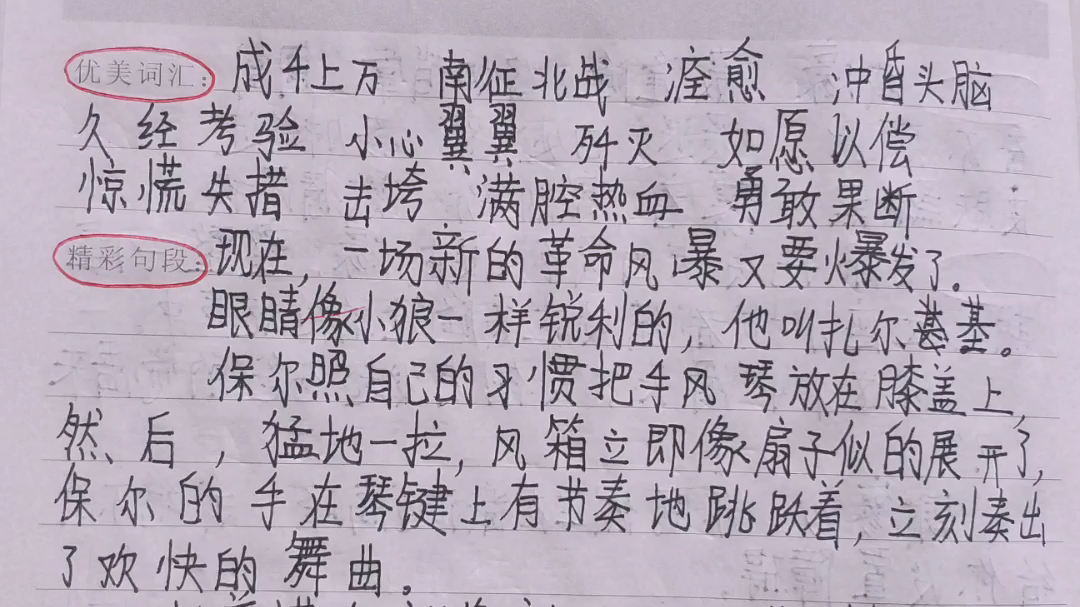 优美词汇：成千上万 南征北战 痊愈 冲昏头脑
久经考验 小心翼翼 歼灭 如愿以偿
惊慌失措 击垮 满腔热血 勇敢果断
精彩句段：现在，一场新的革命风暴又要爆发了。
眼睛像小狼一样锐利的，他叫扎尔基。
保尔照自己的习惯把手风琴放在膝盖上，
然后，猛地一拉，风箱立即像扇子似的展开了，
保尔的手在琴键上有节奏地跳跃着，立刻奏出
了欢快的舞曲。